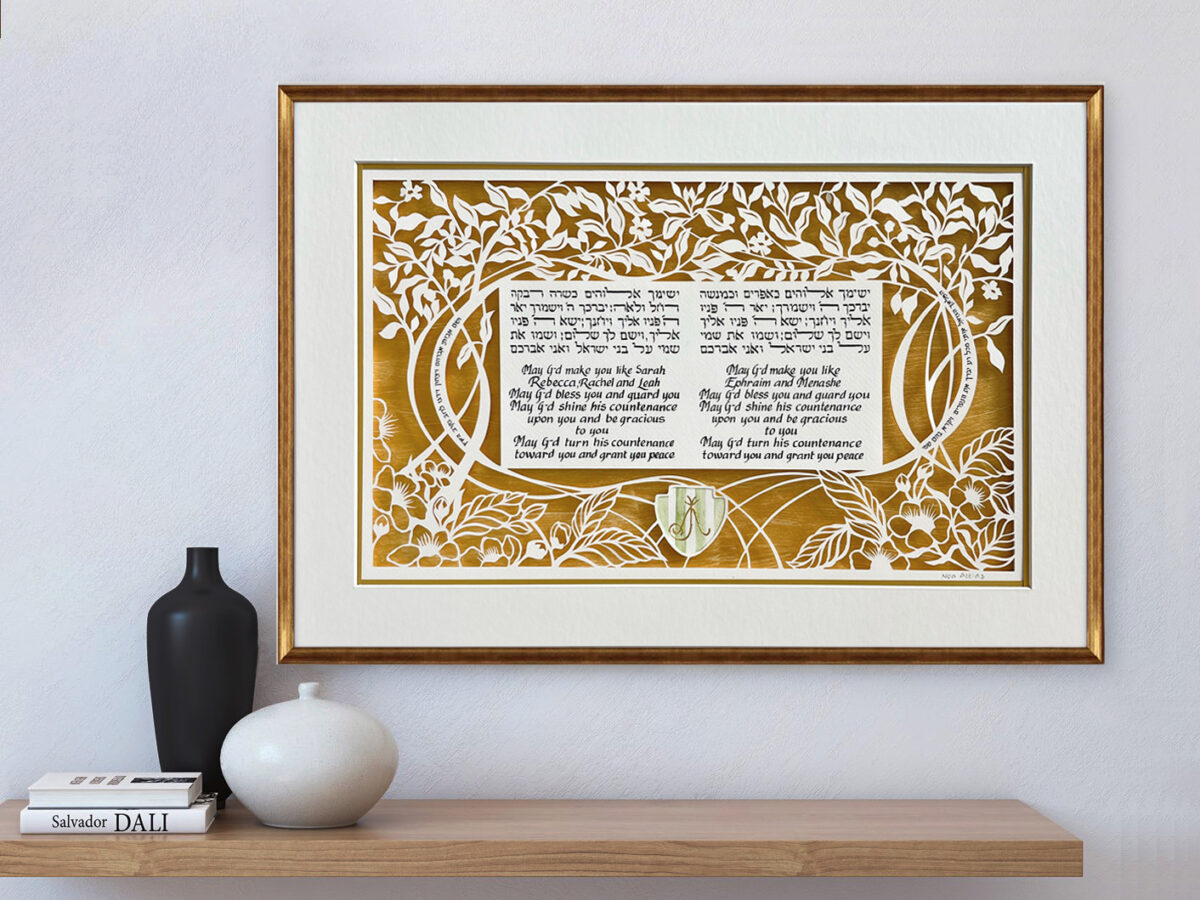 ישימך אלוהים כשרה ורבקה
רחל ולאה; יברכך ה' וישמורך יאר
ה' פניו אליך ויחנך; ישא ה' פניו
אליך, וישם לך שלום; ושמו את
שמי על בני ישראל ואני אברכם
May G-d make you like Sarah
Rebecca, Rachel and Leah
May G-d bless you and guard you
May G-d shine his countenance
upon you and be gracious
to you
May G-d turn his countenance
toward you and grant you peace
ישימך אלוהים כאפרים וכמנשה
יברכך ה' וישמורך; יאר ה' פניו
אליך ויחנך; ישא ה' פניו אליך
וישם לך שלום; ושמו את שמי
על בני ישראל ואני אברכם
May G-d make you like
Ephraim and Menashe
May G-d bless you and guard you
May G-d shine his countenance
upon you and be gracious
to you
May G-d turn his countenance
toward you and grant you peace
Salvador DALI